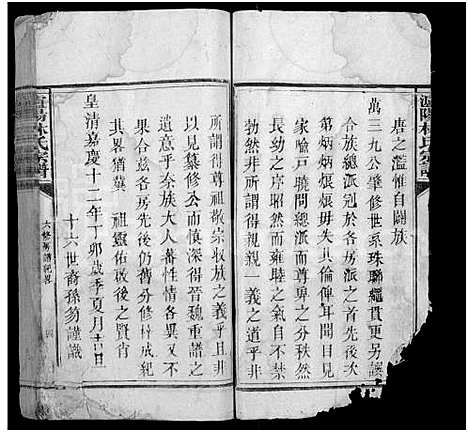 唐之濫惟自闢族
萬三九公肇修世系珠聯繩貫更另該
合族總派冠於各房派之首明
第炳炳烺烺毋失其倫俾耳聞目見
家喻戶曉間總派而尊卑之分秩然
長幼之序宛然而雍睦之氣自不禁
勃然非所謂得親親一義之道乎非
所謂得尊祖敬宗收族之義乎且非
以見纂修公而慎深得晉魏重譜之
遺意乎奈族大人蕃性情各異又不
果合茲各房先後仍舊分修梓成紀
其畧猶冀 祖靈佑啟後之賢肖
皇清嘉慶十二年丁卯歲季夏月吉日
十六世裔孫 謹識
林氏宗譜
六修房譜紀畧